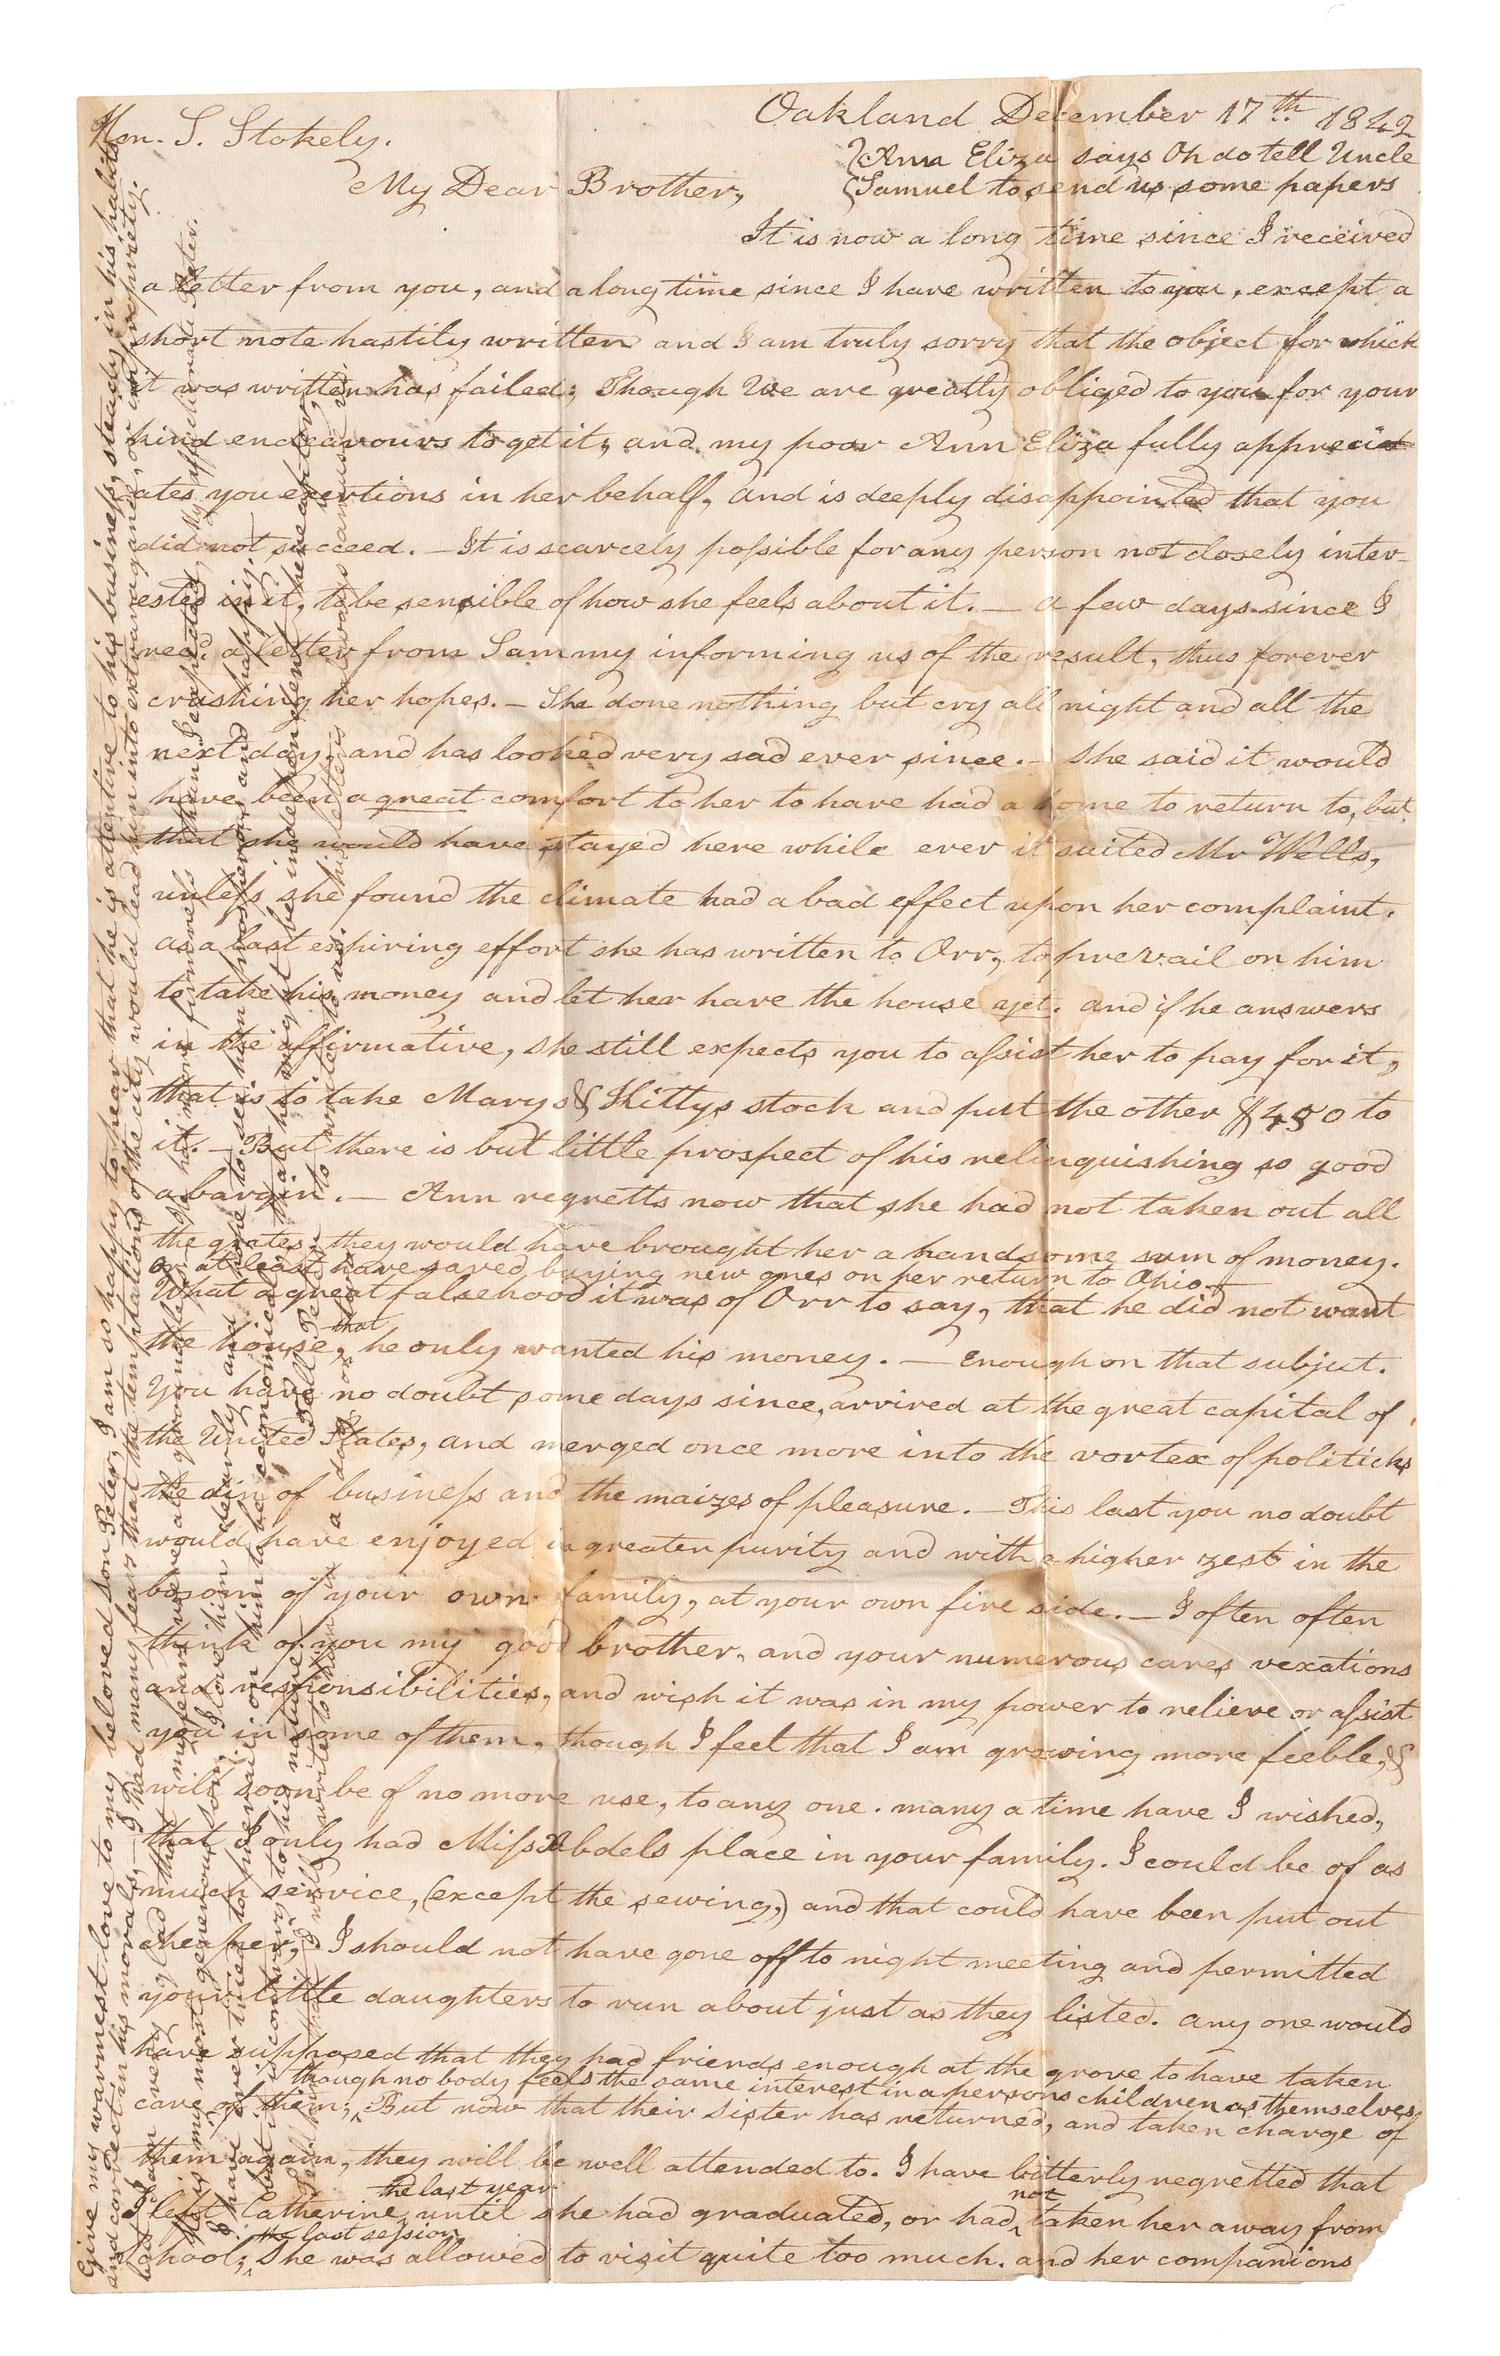 Oakland December 17th 1842
Hon. S. Stokely.
{Ann Eliza says Oh do tell Uncle
{Samuel to send us some papers
My Dear Brother,
It is now a long time since I received
a letter from you, and a long time since I have written to you, except a
short note hastily written and I am truly sorry that the object for which
it was written has failed; Though We are greatly obliged to you for your
kind endeavours to get it, and my poor Ann Eliza fully appreci
ates you exertions in her behalf, and is deeply disappointed that you
did not succeed. — It is scarcely possible for any person not closely inter-
ested in it, to be sensible of how she feels about it. — a few days since I
recd. a letter from Sammy informing us of the result, thus forever
crushing her hopes. — She done nothing but cry all night and all the
next day, and has looked very sad ever since. — She said it would
have been a great comfort to her to have had a home to return to, but
that she would have stayed here while ever it suited Mr Wells,
unless she found the climate had a bad effect upon her complaint.
as a last expiring effort she has written to Orr, to prevail on him
to take his money and let her have the house yet. and if he answers
in the affirmative, she still expects you to assist her to pay for it,
that is to take Marys & Kittys stock and put the other $450 to
it. — But there is but little prospect of his relinquishing so good
a bargin. — Ann regretts now that she had not taken out all
the grates; they would have brought her a handsome sum of money.
or at least have saved buying new ones on her return to Ohio —
What a great falsehood it was of Orr to say, that he did not want
the house, that he only wanted his money. — Enough on that subject.
You have no doubt some days since, arrived at the great capital of
the United States, and merged once more into the vortex of politicks
the din of business and the maizes of pleasure. — This last you no doubt
would have enjoyed in greater purity and with a higher zest in the
bosom of your own family, at your own fire side. — I often often
think of you my good brother, and your numerous cares vexations
and responsibilities, and wish it was in my power to relieve or assist
you in some of them, though I feel that I am growing more feeble, &
will soon be of no more use, to any one. many a time have I wished,
that I only had Miss Abdels place in your family. I could be of as
much service, (except the sewing,) and that could have been put out
cheaper, I should not have gone off to night meeting and permitted
your little daughters to run about just as they listed. any one would
have supposed that they had friends enough at the grove to have taken
though no body feels the same interest in a persons children as themselves,
care of them; But now that their sister has returned, and taken charge of
them again, they will be well attended to. I have bitterly regretted that
I left Catherine the last year until she had graduated, or had not taken her away from
school; the last session she was allowed to visit quite too much. and her companions
Give my warmest love to my beloved son Peter, I am so happy to hear that he is attentive to his business, steady in his habits
and correct in his morals. — I had many fears that the temptations of the city would lead him into extravagance, or impropriety.
but I am very glad that my fears were all groundless, he has more firmness than I expected,
he is my most generous son, I love him dearly and hope to see him prosperous and happy.
I have ever tried to prevail on him to be economical that he might be independent hereafter,
but it is contrary to his nature. Tell Peter
to write to us. his letters always amuse us.
My affectionate Sister.